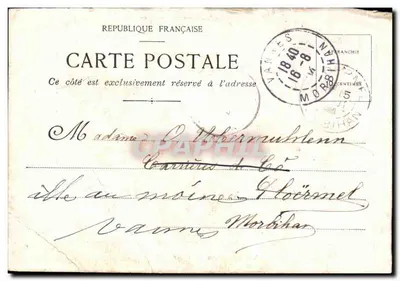 RÉPUBLIQUE FRANÇAISE
CARTE POSTALE
Ce côté est exclusivement réservé à l'adresse
VANNES
18 40
16 -8
MORBIHAN
Madame O.
Carrières & Co
île au moine Ploërmel
Vannes Morbihan